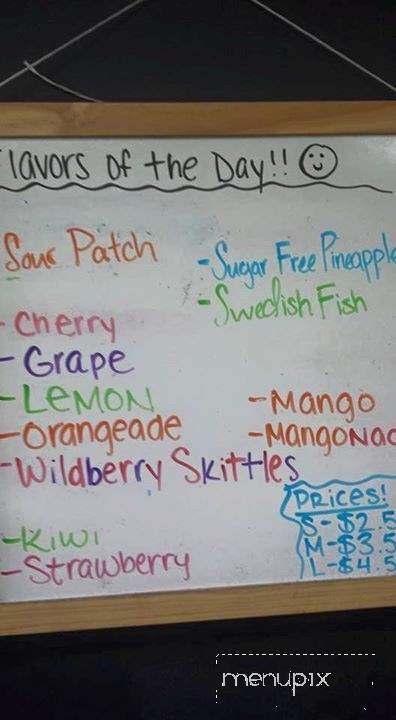 lavors of the Day!!
Sour Patch
-Sugar Free Pineapple
-Swedish Fish
-Cherry
-Grape
-LEMON
-Orangeade
-Wildberry Skittles
-Mango
-MangoNad
-Kiwi
-Strawberry
Prices!
S-$2.5
M-$3.5
L-$4.5
menupix